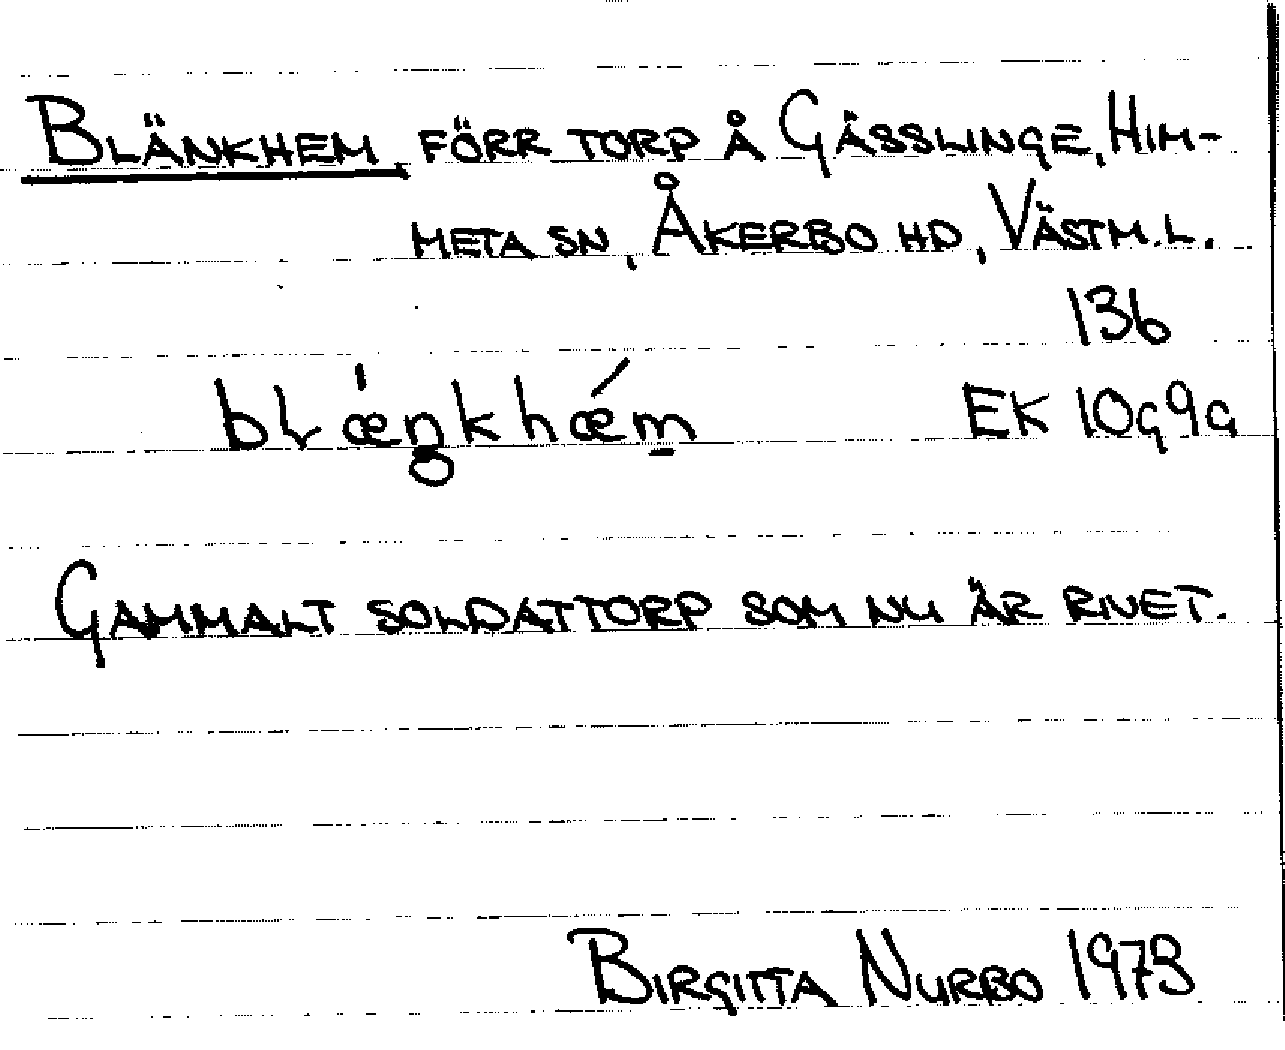 BLÄNKHEM, FÖRR TORP Å GÄSSLINGE, HIM-
META SN, ÅKERBO HD, VÄSTM.L.
136
EK 10g9a
GAMMALT SOLDATTORP SOM NU ÄR RIVET.
BIRGITTA NURBO 1973